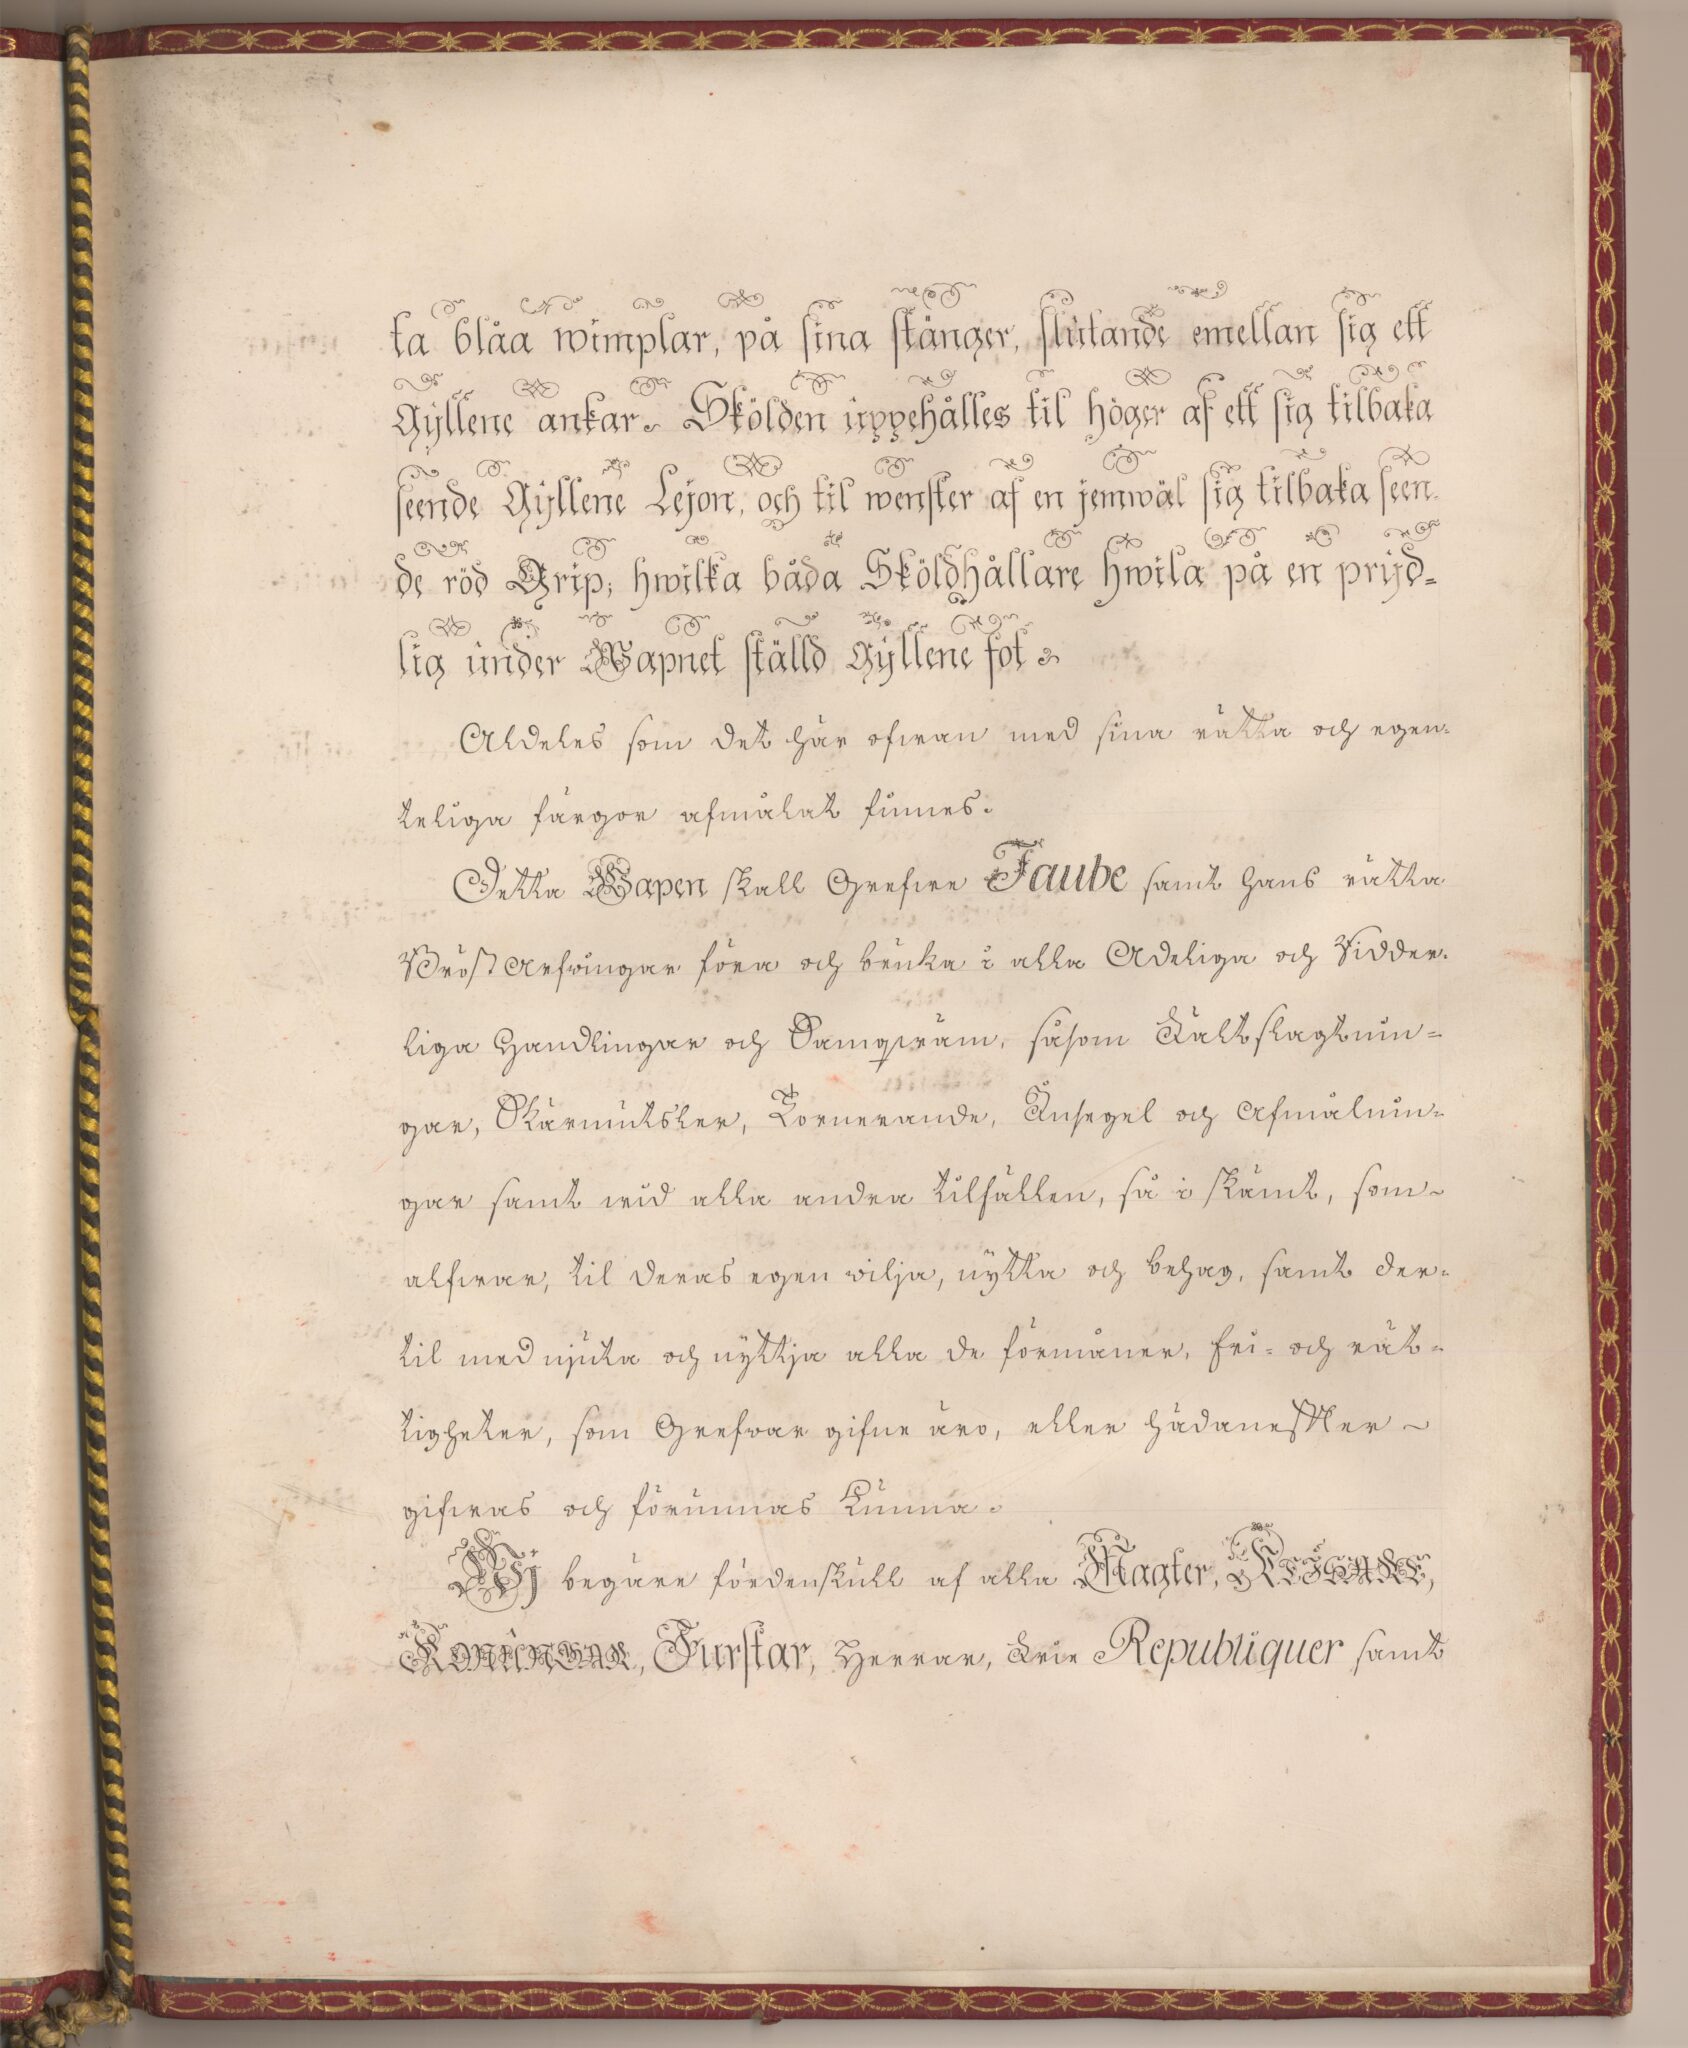 ta blåa wimplar, på sina stänger, slutande emellan sig ett
Gyllene ankar. Skölden uppehålles til höger af ett sig tilbaka
seende Gyllene Lejon, och til wenster af en jemwäl sig tilbaka seen-
de röd Grip; hwilka båda Sköldhållare hwila på en prijd-
lig under Wapnet ställd Gyllene fot.
Aldeles som det här ofwan med sina rätta och egen-
teliga färgor afmålat finnes.
Detta Wapen skall Grefwe Taube samt hans rätta
Bröst Arfwingar föra och bruka i alla Adeliga och Ridder-
liga Handlingar och Samqwäm, såsom Fältslagtnin-
gar, Skärmützler, Tornerande, Insegel och Afmålnin-
gar samt wid alla andra tilfällen, så i skämt, som
alfwar, til deras egen wilja, nytta och behag, samt der-
til med njuta och nyttja alla de förmåner, fri- och rät-
tigheter, som Grefwar gifne äro, eller hädanefter
gifwas och förunnas kunna.
Wij begäre fördenskull af alla Magter, KEISARE,
KONUNGAR, Furstar, Herrar, Frie Republiquer samt